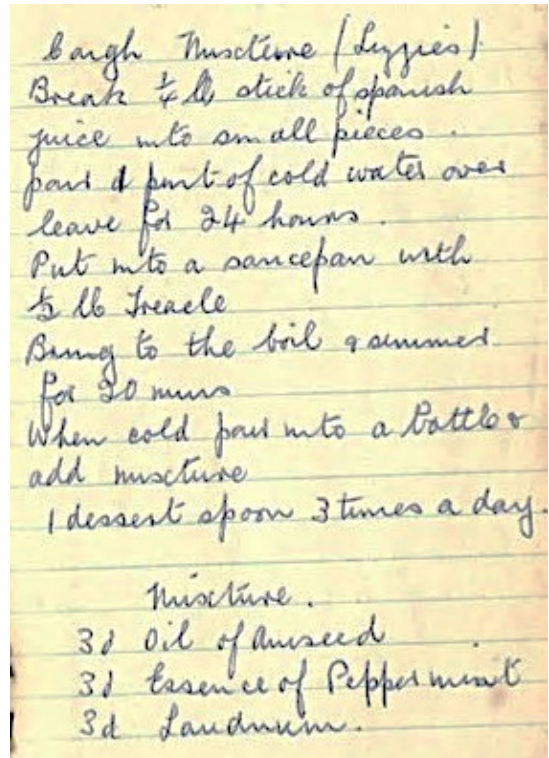 Cough Mixture (Lizzies)
Break ¼ lb stick of spanish
juice into small pieces.
pour 1 pint of cold water over
leave for 24 hours.
Put into a saucepan with
½ lb Treacle
Bring to the boil & simmer
for 20 mins
When cold pour into a bottle &
add mixture
1 dessert spoon 3 times a day.
Mixture.
3d Oil of Aniseed
3d Essence of Peppermint
3d Laudnum.